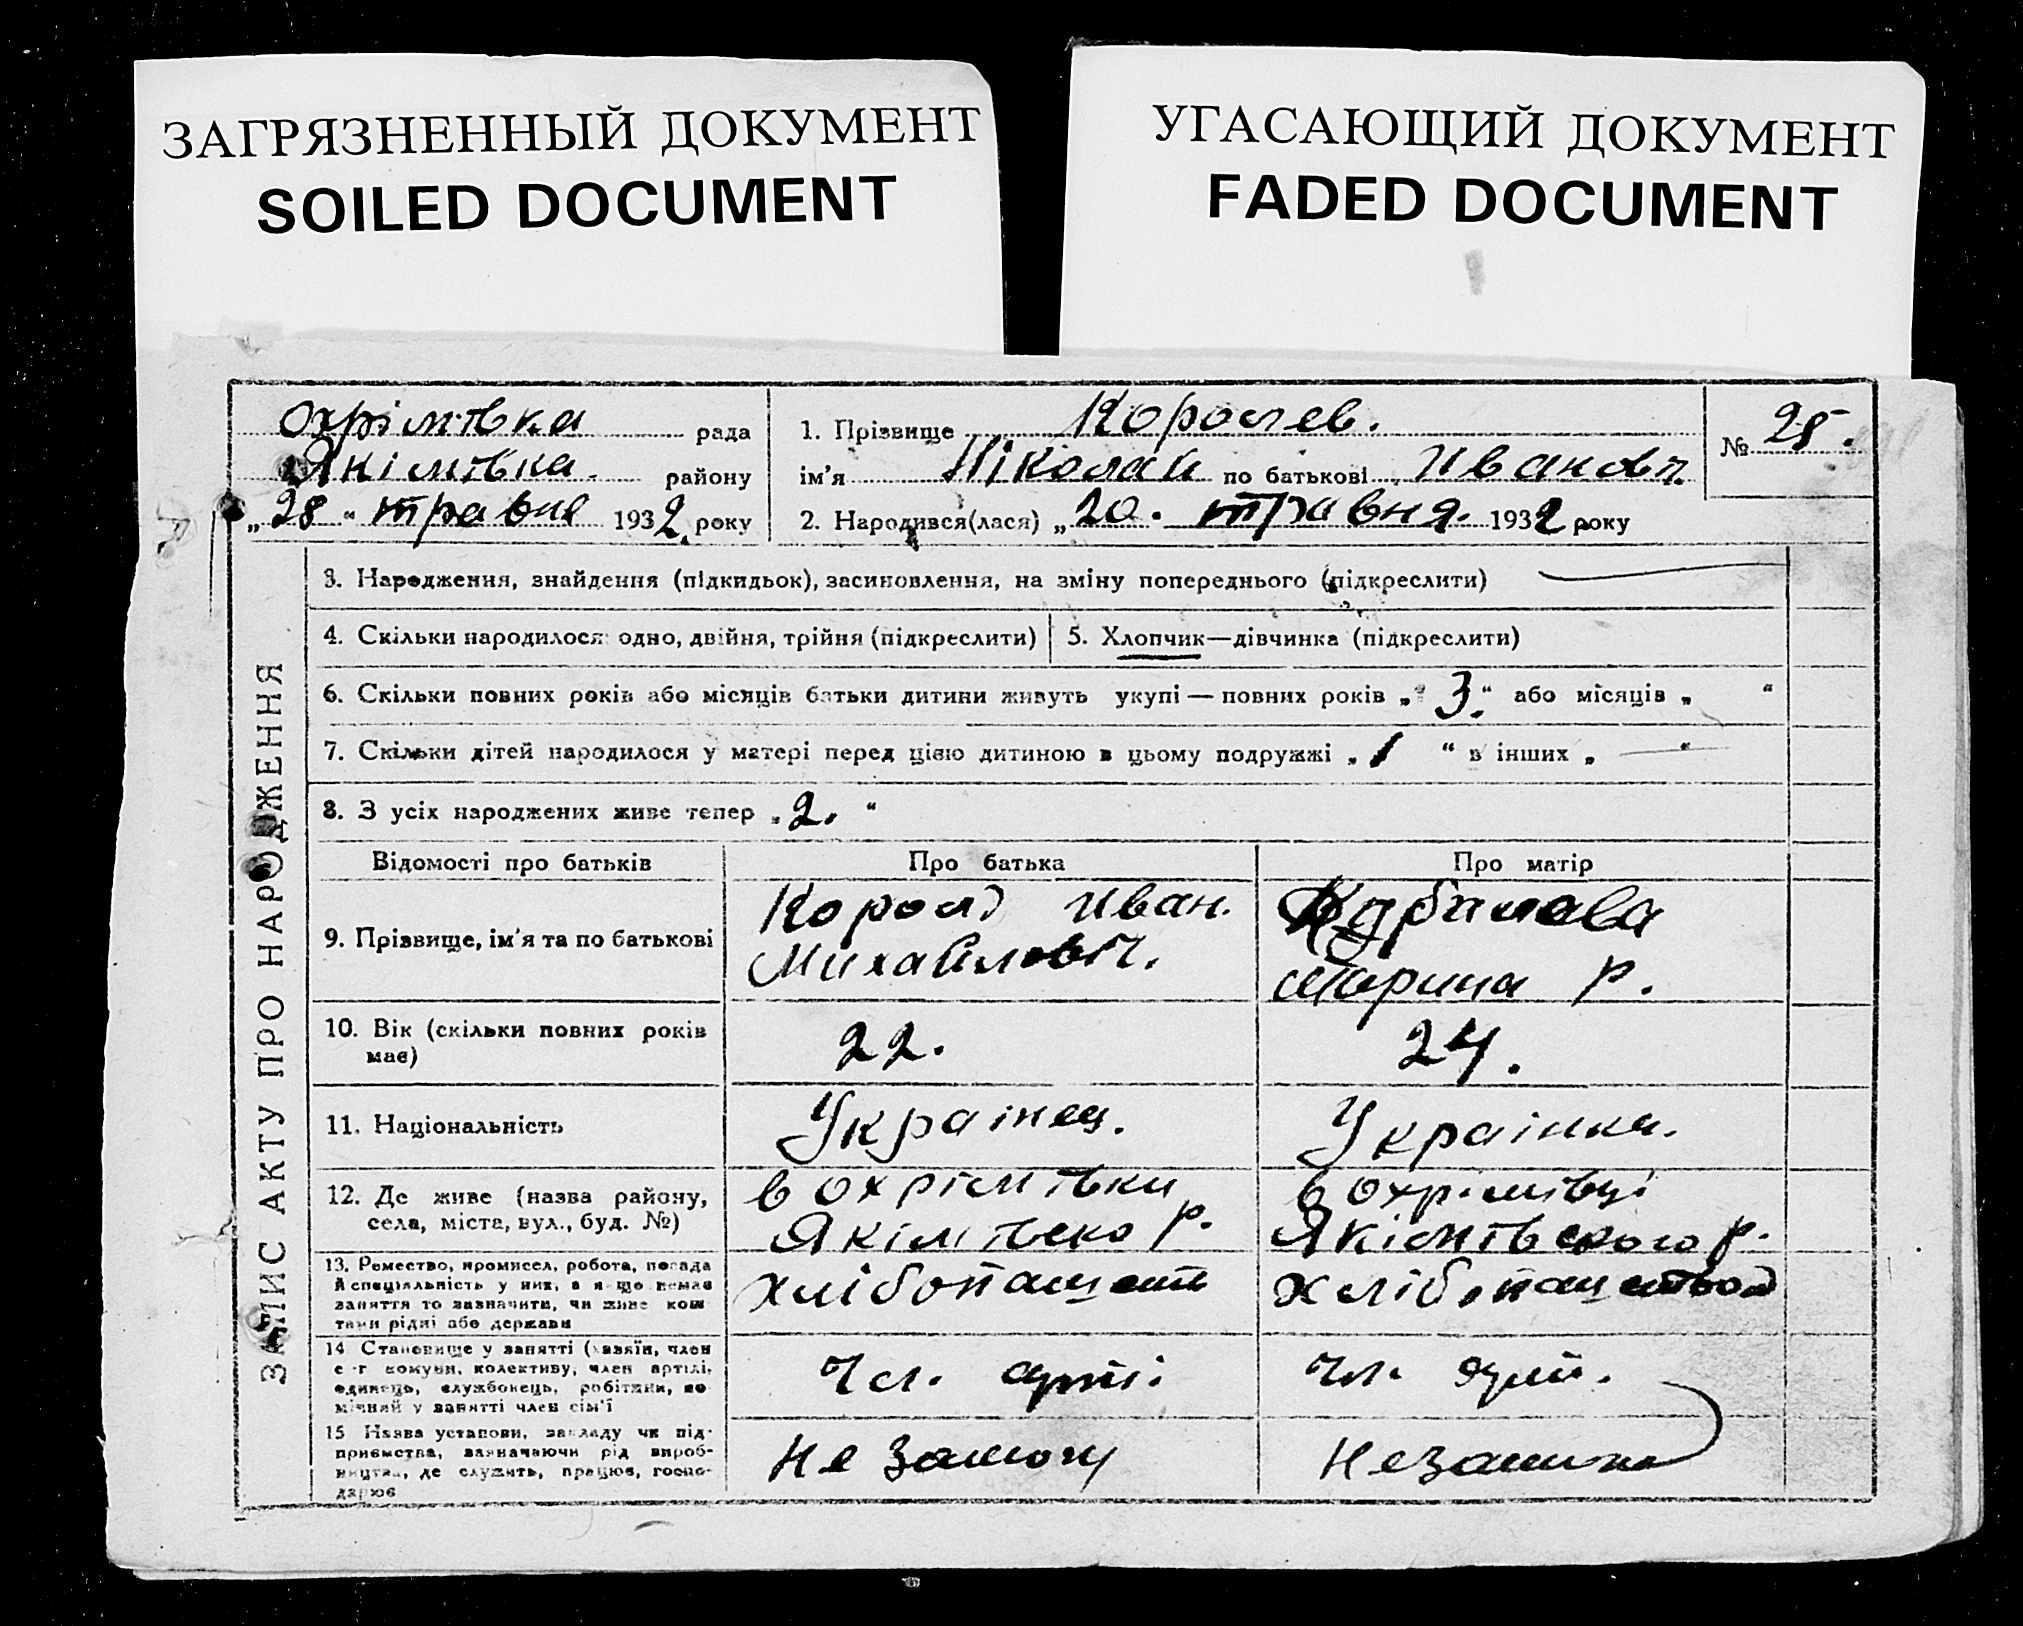 ЗАГРЯЗНЕННЫЙ ДОКУМЕНТ
SOILED DOCUMENT
УГАСАЮЩИЙ ДОКУМЕНТ
FADED DOCUMENT
Охрімівка рада
Якімівка району
„28“ травня 1932 року
1. Прізвище Королев.
ім'я Ніколай по батькові Иванов.
2. Народився(лася) „20. травня. 1932 року
№ 25.
ЗАПИС АКТУ ПРО НАРОДЖЕННЯ
3. Народження, знайдення (підкидьок), засиновлення, на зміну попереднього (підкреслити)
4. Скільки народилося: одно, двійня, трійня (підкреслити)
5. Хлопчик—дівчинка (підкреслити)
6. Скільки повних років або місяців батьки дитини живуть укупі — повних років „3.“ або місяців „ “
7. Скільки дітей народилося у матері перед цією дитиною в цьому подружжі „1 “ в інших „ — “
8. З усіх народжених живе тепер „2. “
Відомості про батьків
Про батька
Про матір
9. Прізвище, ім'я та по батькові
Иван.
Михайлович.
Марина Р.
10. Вік (скільки повних років
має)
22.
24.
11. Національність
Українец.
Українка.
12. Де живе (назва району,
села, міста, вул., буд. №)
в Охрімівки
Якімівско р.
в Охрімівці
Якімівского р.
13. Ремество, промисел, робота, посада
й спеціяльність у них, а якщо немає
заняття то зазначити, чи живе кош
тами рідні або держави
хлібопашест
хлібопашество
14 Становище у занятті (хазяїн, член
с-г комуни, колективу, член артілі,
одинець, службовець, робітник, по
мічний у занятті член сім'ї
Чл. арті.
Чл.
15 Назва установи, закладу чи під-
приємства, зазначаючи рід вироб-
ництва, де служить, працює, госпо-
дарює
Не замож
Незаможна